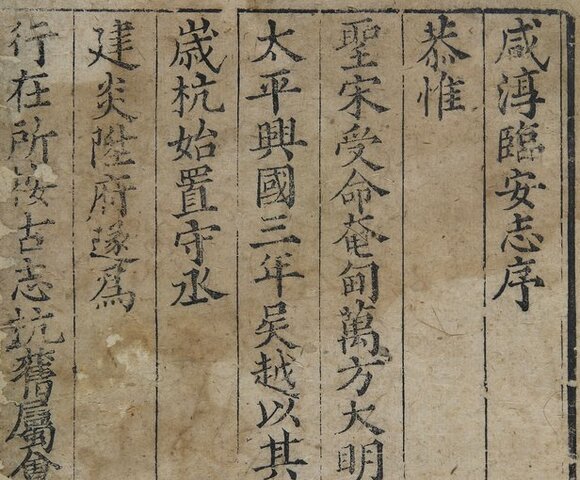 咸淳臨安志序
恭惟
聖宋受命奄甸萬方大明
太平興國三年吳越以其
歲杭始置守丞
建炎陞府遂為
行在所按古志杭舊屬會